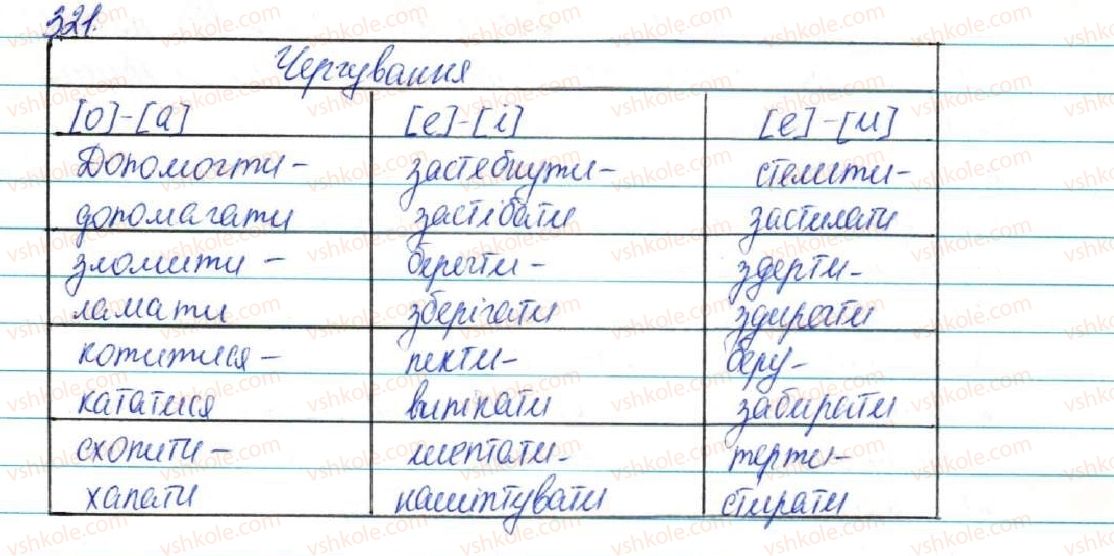 321.
Чергування
[о]-[а] [е]-[і] [е]-[и]
Допомогти- застебнути- стелити-
допомагати застібати застилати
зломити - берегти- здерти-
ламати зберігати здирати
котитися- пекти- беру-
кататися випікати забирати
схопити- шептати- терти-
хапати нашіптувати стирати
vshkole.com